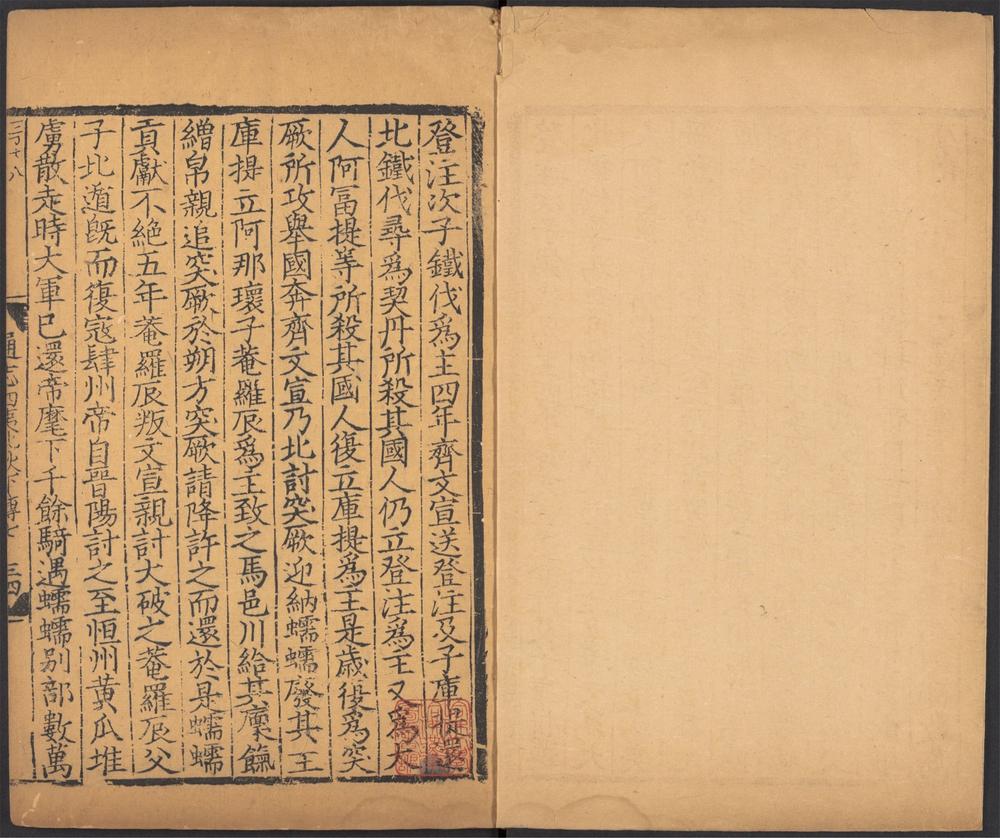 登注次子鐵伐爲主四年齊文宣送登注及子庫提還
北鐵伐尋爲契丹所殺其國人仍立登注爲主又爲大
人阿富提等所殺其國人復立庫提爲主是歲復爲突
厥所攻舉國奔齊文宣乃北討突厥迎納蠕蠕廢其主
庫提立阿那瓌子菴羅辰爲主致之馬邑川給其廩餼
繒帛親追突厥於朔方突厥請降許之而還於是蠕蠕
貢獻不絕五年菴羅辰叛文宣親討大破之菴羅辰父
子北遁旣而復寇肆州帝自晉陽討之至恒州黃瓜堆
虜散走時大軍已還帝麾下千餘騎遇蠕蠕别部數萬
通志四夷北狄下傳七 三四